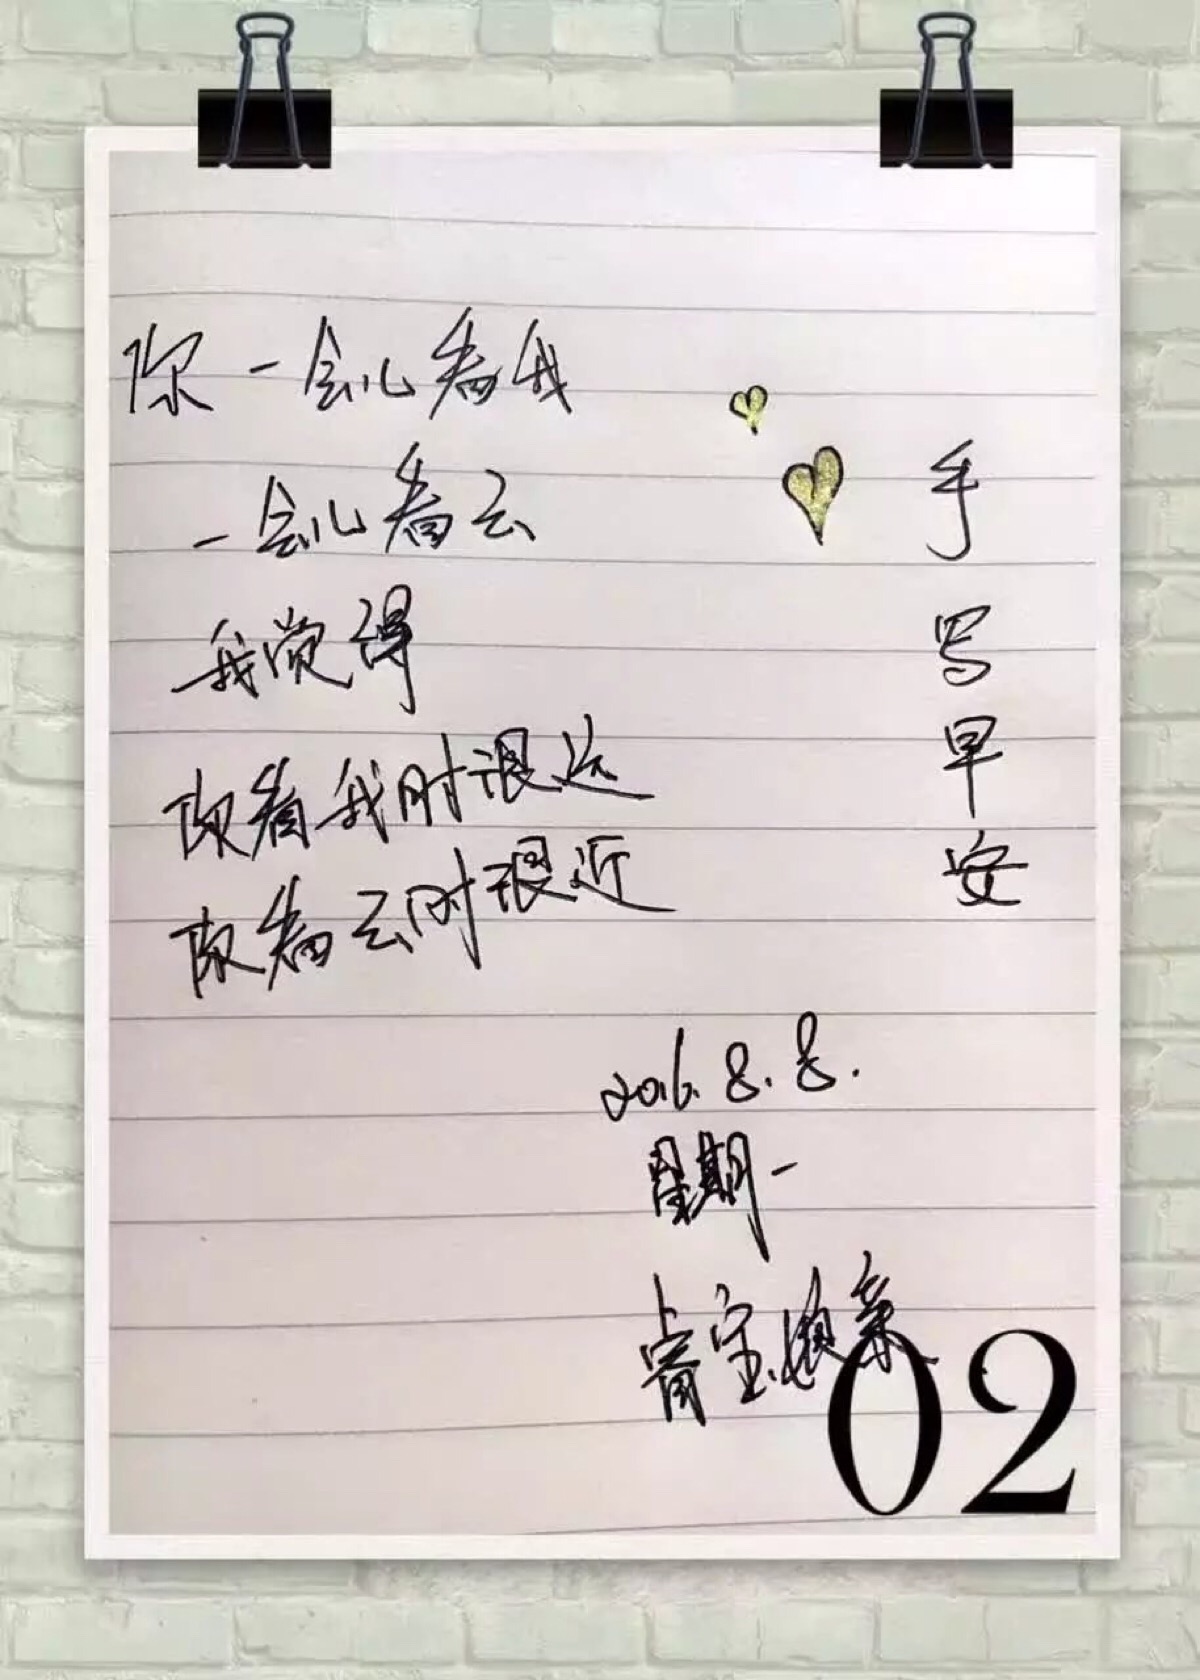 你一会儿看我
一会儿看云
我觉得
你看我时很远
你看云时很近
手写早安
2016.8.8.
星期一
宝娘亲
02